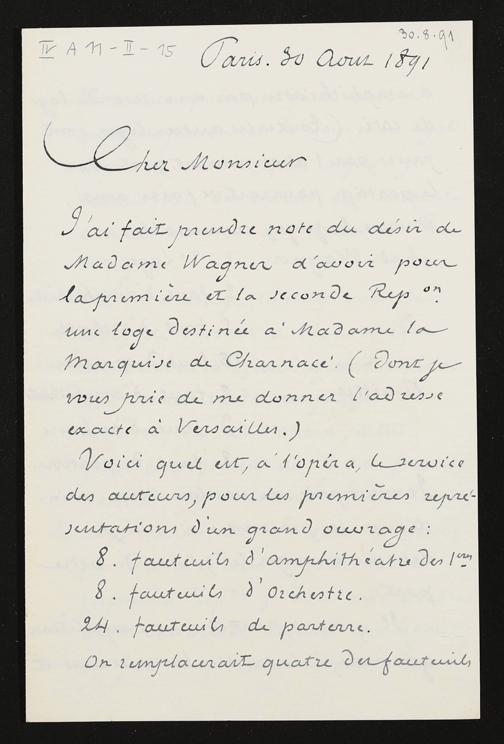 IV A 11-II-15
30.8.91
Paris. 30 Aout 1891
Cher Monsieur
J'ai fait prendre note du désir de
Madame Wagner d'avoir pour
la première et la seconde Rep on
une loge destinée à Madame la
Marquise de Charnacé. (dont je
vous prie de me donner l'adresse
exacte à Versailles.)
Voici quel est, à l'opéra, le service
des auteurs, pour les premières repré-
sentations d'un grand ouvrage :
8. fauteuils d'amphithéatre des 1ères
8. fauteuils d'Orchestre.
24. fauteuils de parterre.
On remplacerait quatre des fauteuils